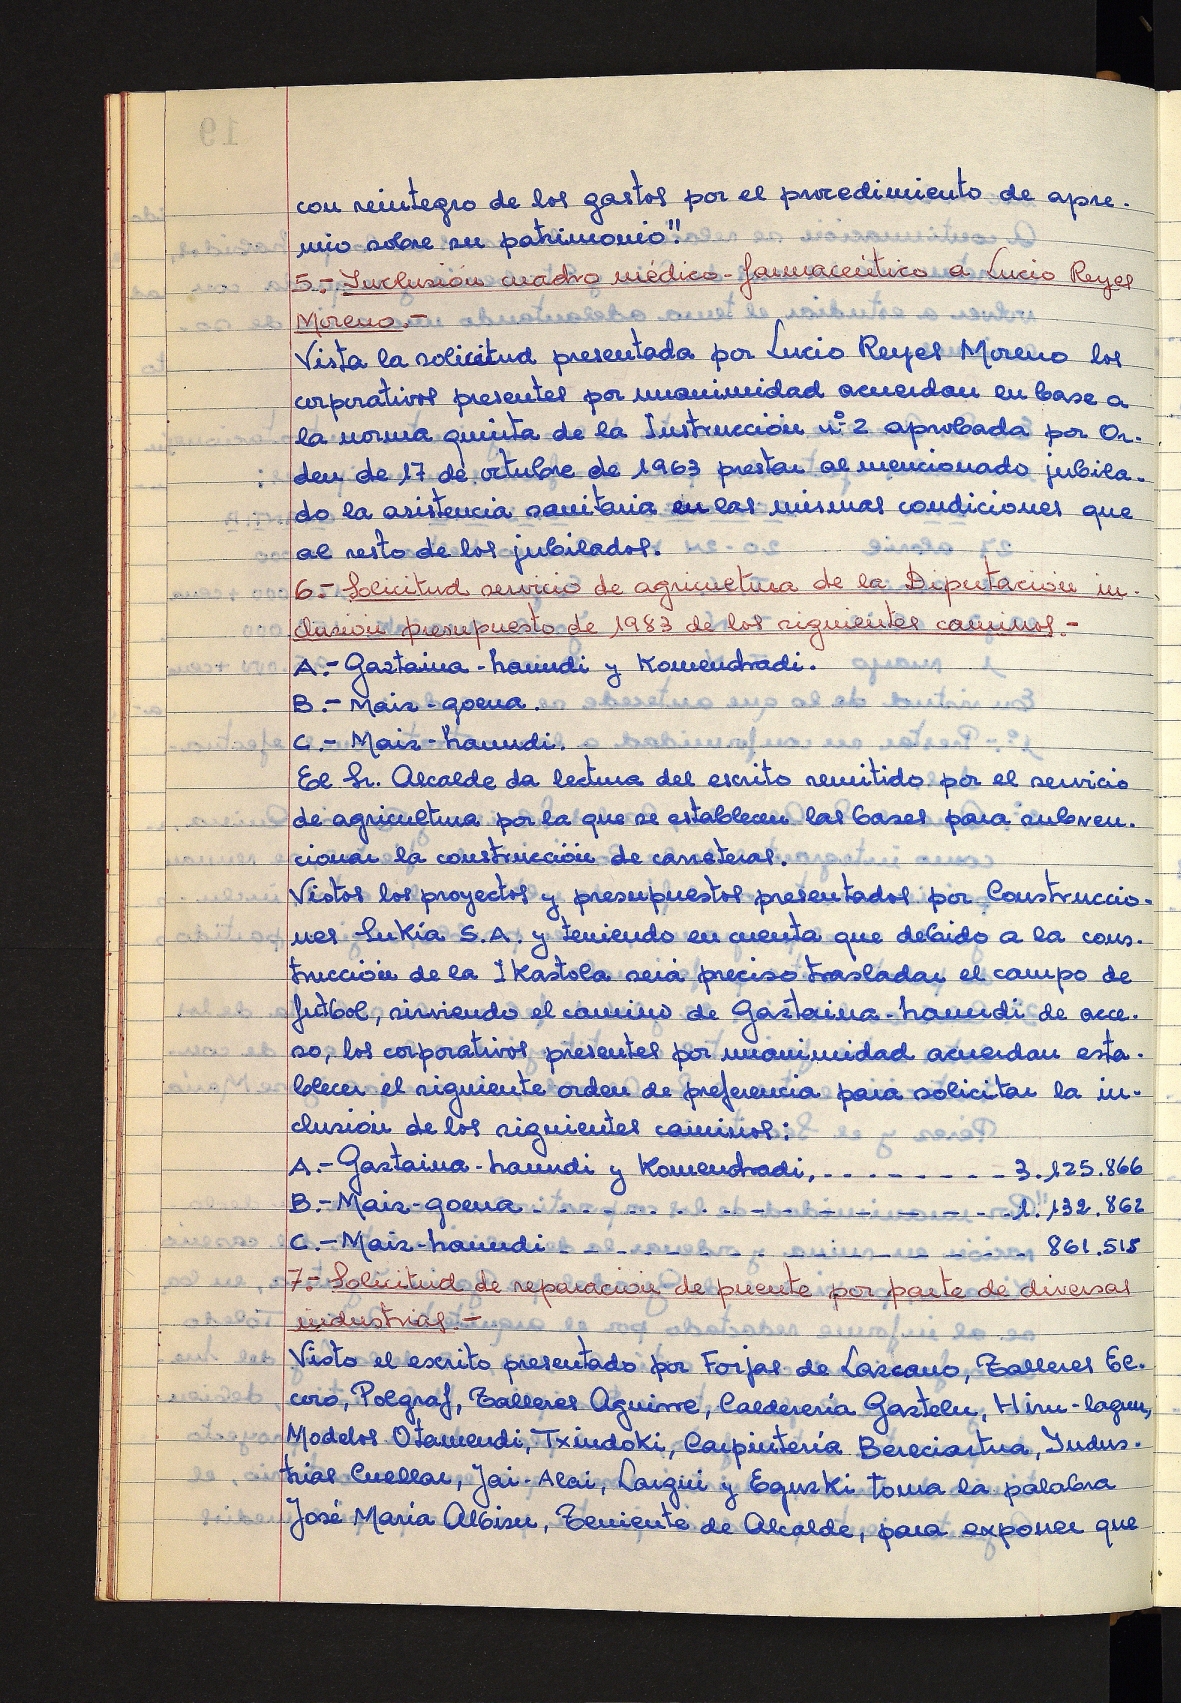 con reintegro de los gastos por el procedimiento de apre-
mio sobre su patrimonio".
5.- Inclusión cuadro médico-farmaceútico a Lucio Reyes
Moreno.-
Vista la solicitud presentada por Lucio Reyes Moreno los
corporativos presentes por unanimidad acuerdan en base a
la norma quinta de la Instrucción nº 2 aprobada por Or-
den de 17 de octubre de 1963 prestar al mencionado jubila-
do la asistencia sanitaria en las mismas condiciones que
al resto de los jubilados.
6.- Solicitud servicio de agricultura de la Diputación in-
clusión presupuesto de 1983 de los siguientes caminos.-
A.- Gaztaina-haundi y Komendradi.
B.- Maiz-goena.
C.- Maiz-haundi.
El Sr. Alcalde da lectura del escrito remitido por el servicio
de agricultura por la que se establecen las bases para subven-
cionar la construcción de carreteras.
Vistos los proyectos y presupuestos presentados por Construccio-
nes Sukía S.A. y teniendo en cuenta que debido a la cons-
trucción de la Ikastola será preciso trasladar el campo de
futbol, sirviendo el camino de Gaztaina-haundi de acce-
so, los corporativos presentes por unanimidad acuerdan esta-
blecer el siguiente orden de preferencia para solicitar la in-
clusión de los siguientes caminos:
A.- Gaztaina-haundi y Komendradi, - - - - - - - - - 3.125.866
B.- Maiz-goena - - - - - - - - - - - - - - - 1.132.862
C.- Maiz-haundi - - - - - - - - - - - - 861.515
7.- Solicitud de reparación de puente por parte de diversas
industrias.-
Visto el escrito presentado por Forjas de Lazcano, Talleres El-
coro, Polgraf, Talleres Aguirre, Calderería Gaztelu, Hiru-lagun,
Modelos Otamendi, Txindoki, Carpintería Bereciartua, Indus-
trias Cuellar, Jai-Alai, Laizui y Eguzki toma la palabra
José María Albisu, Teniente de Alcalde, para exponer que